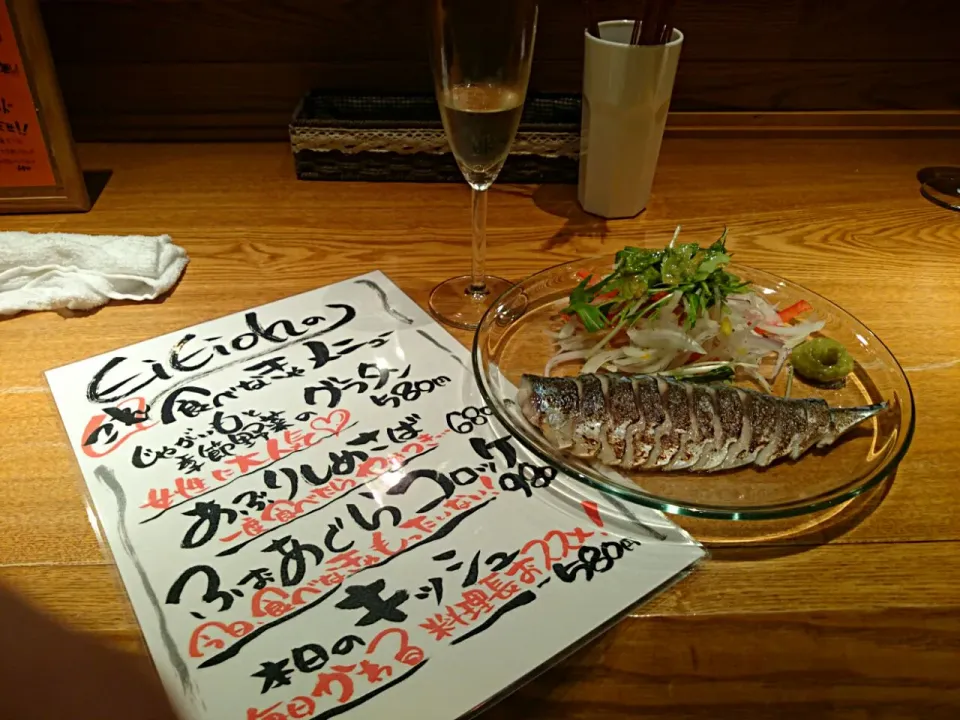 EiEiohの
これ食べなきゃメニュー
じゃがいもと
季節野菜の
グラタン
580円
女性に大人気♡
あぶりしめさば
680
一度食べたらやみつき…
ふぉあぐらコロッケ
980
今日、食べなきゃもったいない!
本日のキッシュ
580円
毎日かわる料理長おススメ!